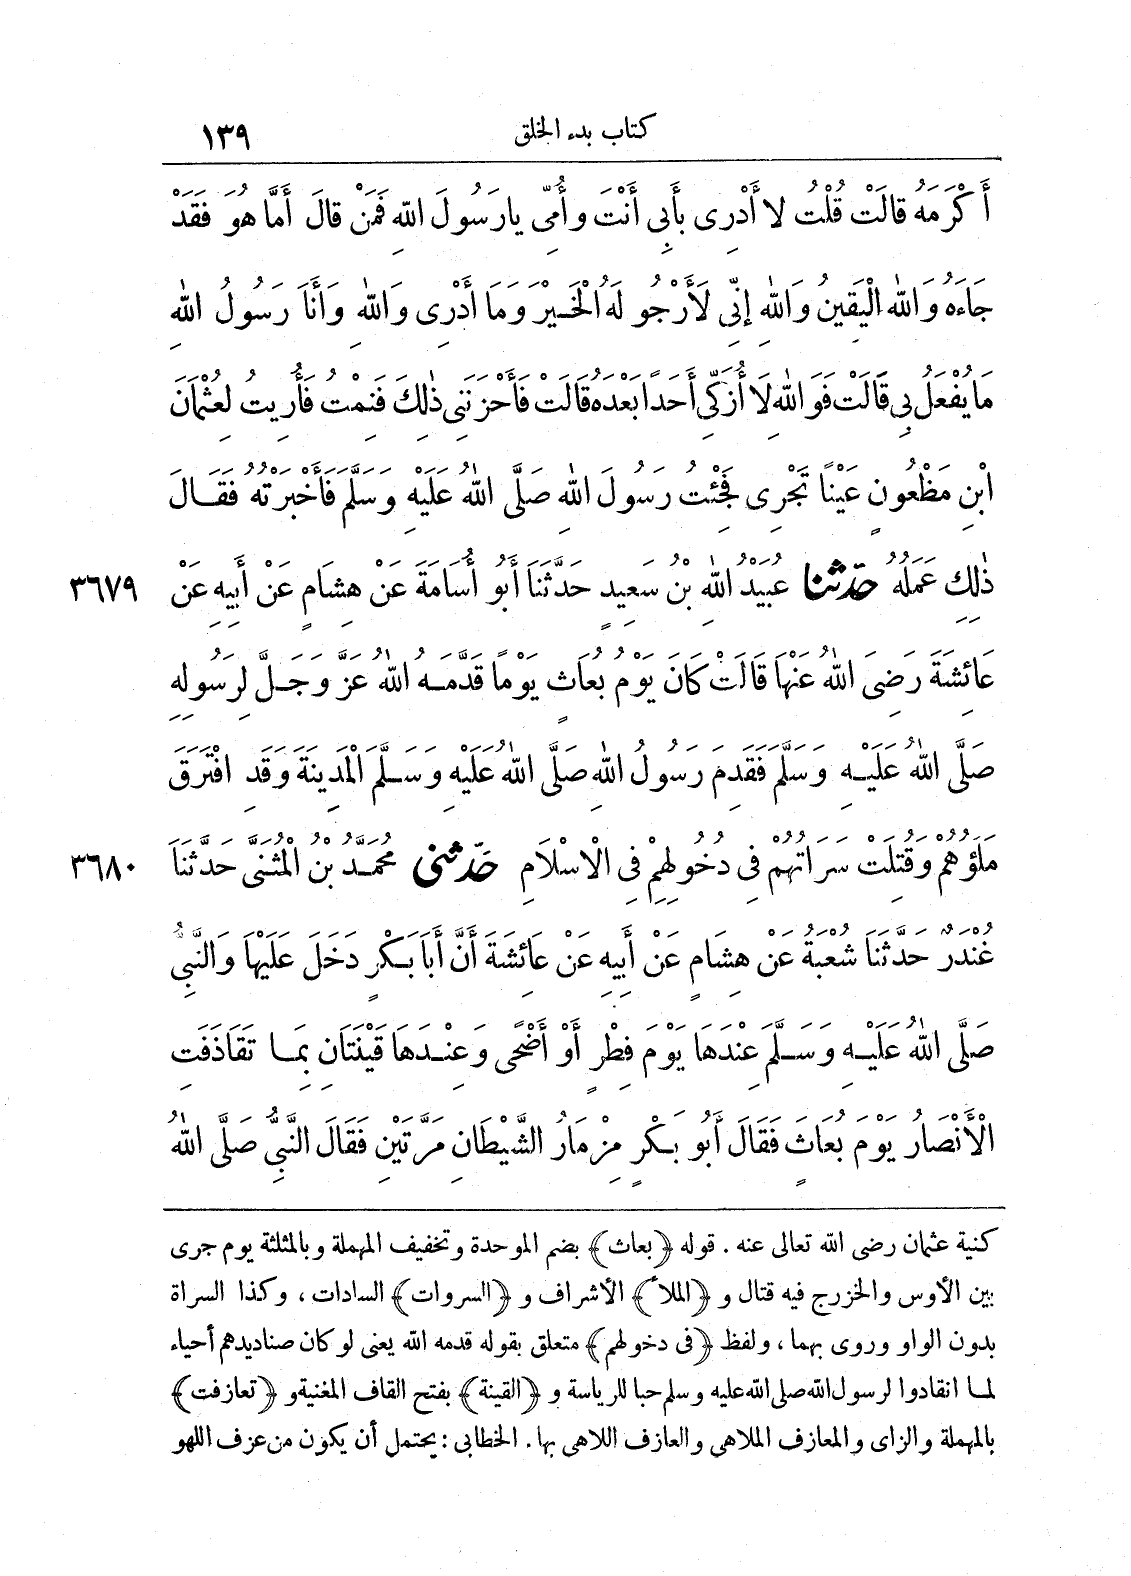 كتاب بدء الخلق ١٣٩
أَكْرَمَهُ قَالَتْ قُلْتُ لَا أَدْرِى بِأَبِى أَنْتَ وَأُمِّى يَا رَسُولَ اللهِ فَمَنْ قَالَ أَمَّا هُوَ فَقَدْ
جَاءَهُ وَاللهِ الْيَقِينُ وَاللهِ إِنِّى لَأَرْجُو لَهُ الْخَيْرَ وَمَا أَدْرِى وَاللهِ وَأَنَا رَسُولُ اللهِ
مَا يُفْعَلُ بِى قَالَتْ فَوَاللهِ لَا أُزَكِّى أَحَدًا بَعْدَهُ قَالَتْ فَأَحْزَنَنِى ذٰلِكَ فَنِمْتُ فَأُرِيتُ لِعُثْمَانَ
ابْنِ مَظْعُونٍ عَيْنًا تَجْرِى فَجِئْتُ رَسُولَ اللهِ صَلَّى اللهُ عَلَيْهِ وَسَلَّمَ فَأَخْبَرْتُهُ فَقَالَ
ذٰلِكِ عَمَلُهُ حَدَّثَنَا عُبَيْدُ اللهِ بْنُ سَعِيدٍ حَدَّثَنَا أَبُو أُسَامَةَ عَنْ هِشَامٍ عَنْ أَبِيهِ عَنْ ٣٦٧٩
عَائِشَةَ رَضِىَ اللهُ عَنْهَا قَالَتْ كَانَ يَوْمُ بُعَاثٍ يَوْمًا قَدَّمَهُ اللهُ عَزَّ وَجَلَّ لِرَسُولِهِ
صَلَّى اللهُ عَلَيْهِ وَسَلَّمَ فَقَدِمَ رَسُولُ اللهِ صَلَّى اللهُ عَلَيْهِ وَسَلَّمَ الْمَدِينَةَ وَقَدِ افْتَرَقَ
مَلَؤُهُمْ وَقُتِلَتْ سَرَاتُهُمْ فِى دُخُولِهِمْ فِى الْإِسْلَامِ حَدَّثَنِى مُحَمَّدُ بْنُ الْمُثَنَّى حَدَّثَنَا ٣٦٨٠
غُنْدَرٌ حَدَّثَنَا شُعْبَةُ عَنْ هِشَامٍ عَنْ أَبِيهِ عَنْ عَائِشَةَ أَنَّ أَبَا بَكْرٍ دَخَلَ عَلَيْهَا وَالنَّبِىُّ
صَلَّى اللهُ عَلَيْهِ وَسَلَّمَ عِنْدَهَا يَوْمَ فِطْرٍ أَوْ أَضْحًى وَعِنْدَهَا قَيْنَتَانِ بِمَا تَقَاذَفَتِ
الْأَنْصَارُ يَوْمَ بُعَاثَ فَقَالَ أَبُو بَكْرٍ مِزْمَارُ الشَّيْطَانِ مَرَّتَيْنِ فَقَالَ النَّبِىُّ صَلَّى اللهُ
كنية عثمان رضى الله تعالى عنه . قوله ﴿بعاث﴾ بضم الموحدة وتخفيف المهملة وبالمثلثة يوم جرى
بين الأوس والخزرج فيه قتال و ﴿الملأ﴾ الأشراف و ﴿السروات﴾ السادات ، وكذا السراة
بدون الواو وروى بهما ، ولفظ ﴿فى دخولهم﴾ متعلق بقوله قدمه الله يعنى لو كان صناديدهم أحياء
لما انقادوا لرسول الله صلى الله عليه وسلم حبا للرياسة و ﴿القينة﴾ بفتح القاف المغنية و ﴿تعازفت﴾
بالمهملة والزاى والمعازف الملاهى والعازف اللاهى بها . الخطابى : يحتمل أن يكون من عزف اللهو